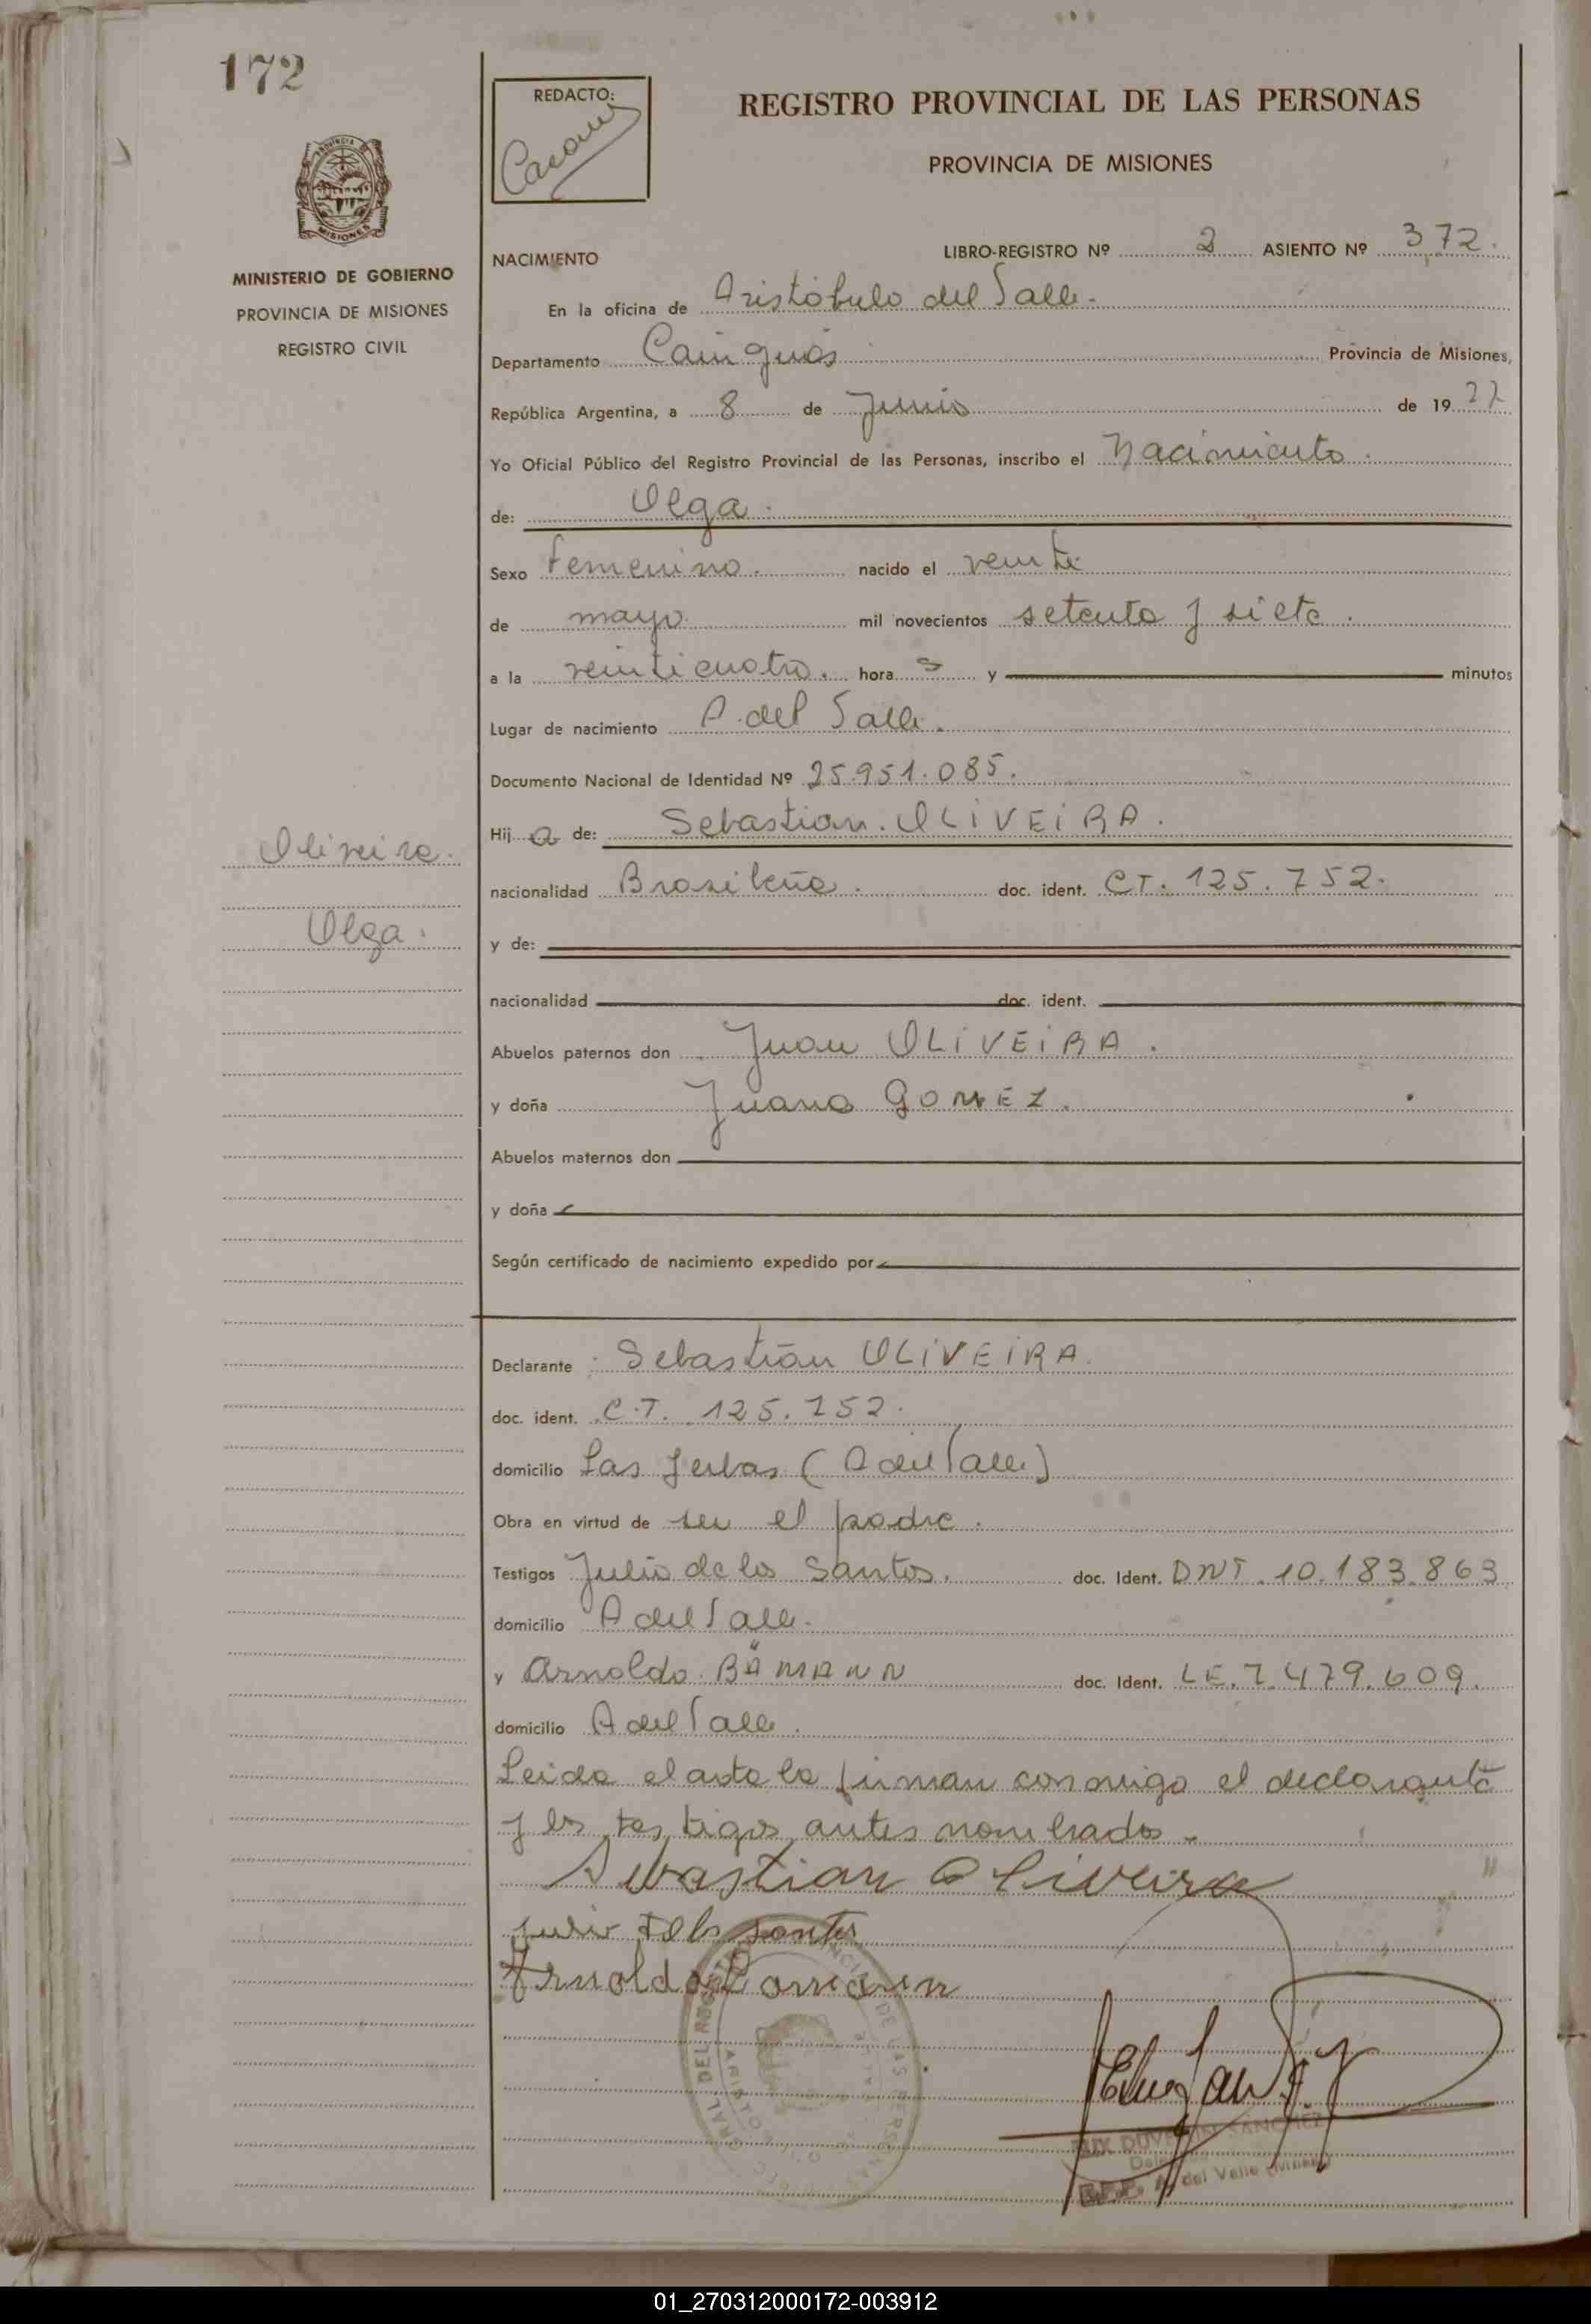 172
REDACTO:
REGISTRO PROVINCIAL DE LAS PERSONAS
PROVINCIA DE MISIONES
MISIONES
MINISTERIO DE GOBIERNO
PROVINCIA DE MISIONES
REGISTRO CIVIL
NACIMIENTO
LIBRO-REGISTRO Nº 2 ASIENTO Nº 372.
En la oficina de Aristóbulo del Valle.
Departamento Cainguás Provincia de Misiones,
República Argentina, a 8 de Junio de 1977
Yo Oficial Público del Registro Provincial de las Personas, inscribo el Nacimiento.
de: Olga.
Sexo femenino. nacido el veinte
de mayo mil novecientos setenta y siete.
a la veinticuatro. hora s y minutos
Lugar de nacimiento A. del Valle.
Documento Nacional de Identidad Nº 25.951.085.
Hij a de: Sebastian. OLIVEIRA.
Oliveira.
nacionalidad Brasileña. doc. ident. CT. 125.752.
Olga.
y de:
nacionalidad doc. ident.
Abuelos paternos don Juan OLIVEIRA.
y doña Juana GOMEZ.
Abuelos maternos don
y doña
Según certificado de nacimiento expedido por
Declarante: Sebastián OLIVEIRA.
doc. ident. C.T. 125.752.
domicilio Las Yerbas (A del Valle)
Obra en virtud de ser el padre.
Testigos Julio de los Santos. doc. Ident. DNI. 10.183.863
domicilio A del Valle.
y Arnoldo. BÄMANN doc. Ident. LE. 7.479.609.
domicilio A del Valle.
Leida el acta la firman conmigo el declarante
y los testigos antes nombrados.
Sebastian Oliveira
Julio de los santos
Arnoldo
SANCHEZ
del Valle
01_270312000172-003912